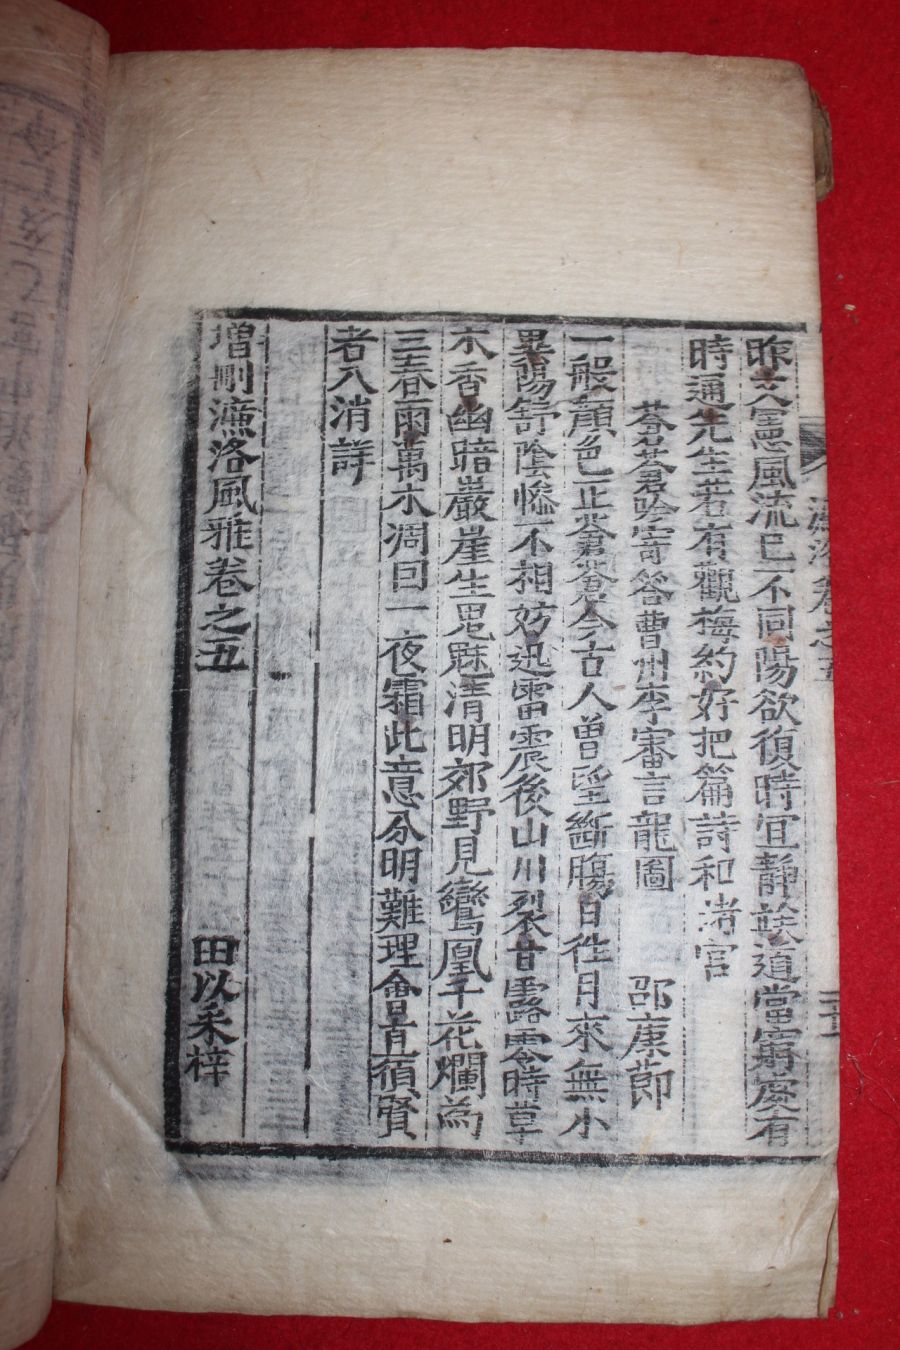 昨天意風流已不同陽欲復時宜靜姤道當窮處有
時通先生若有觀梅約好把篇詩和渚宮
蒼蒼吟寄答曹州李審言龍圖 邵康節
一般顔色正蒼蒼今古人曾望斷腸日徃月來無小
異陽舒陰慘不相妨迅雷震後山川裂甘露零時草
木香幽暗巖崖生鬼魅淸明郊野見鸞凰千花爛爲
三春雨萬木凋囙一夜霜此意分明難理會直須賢
者入消詳
增刪濂洛風雅卷之五
田以采梓
濂洛卷之五